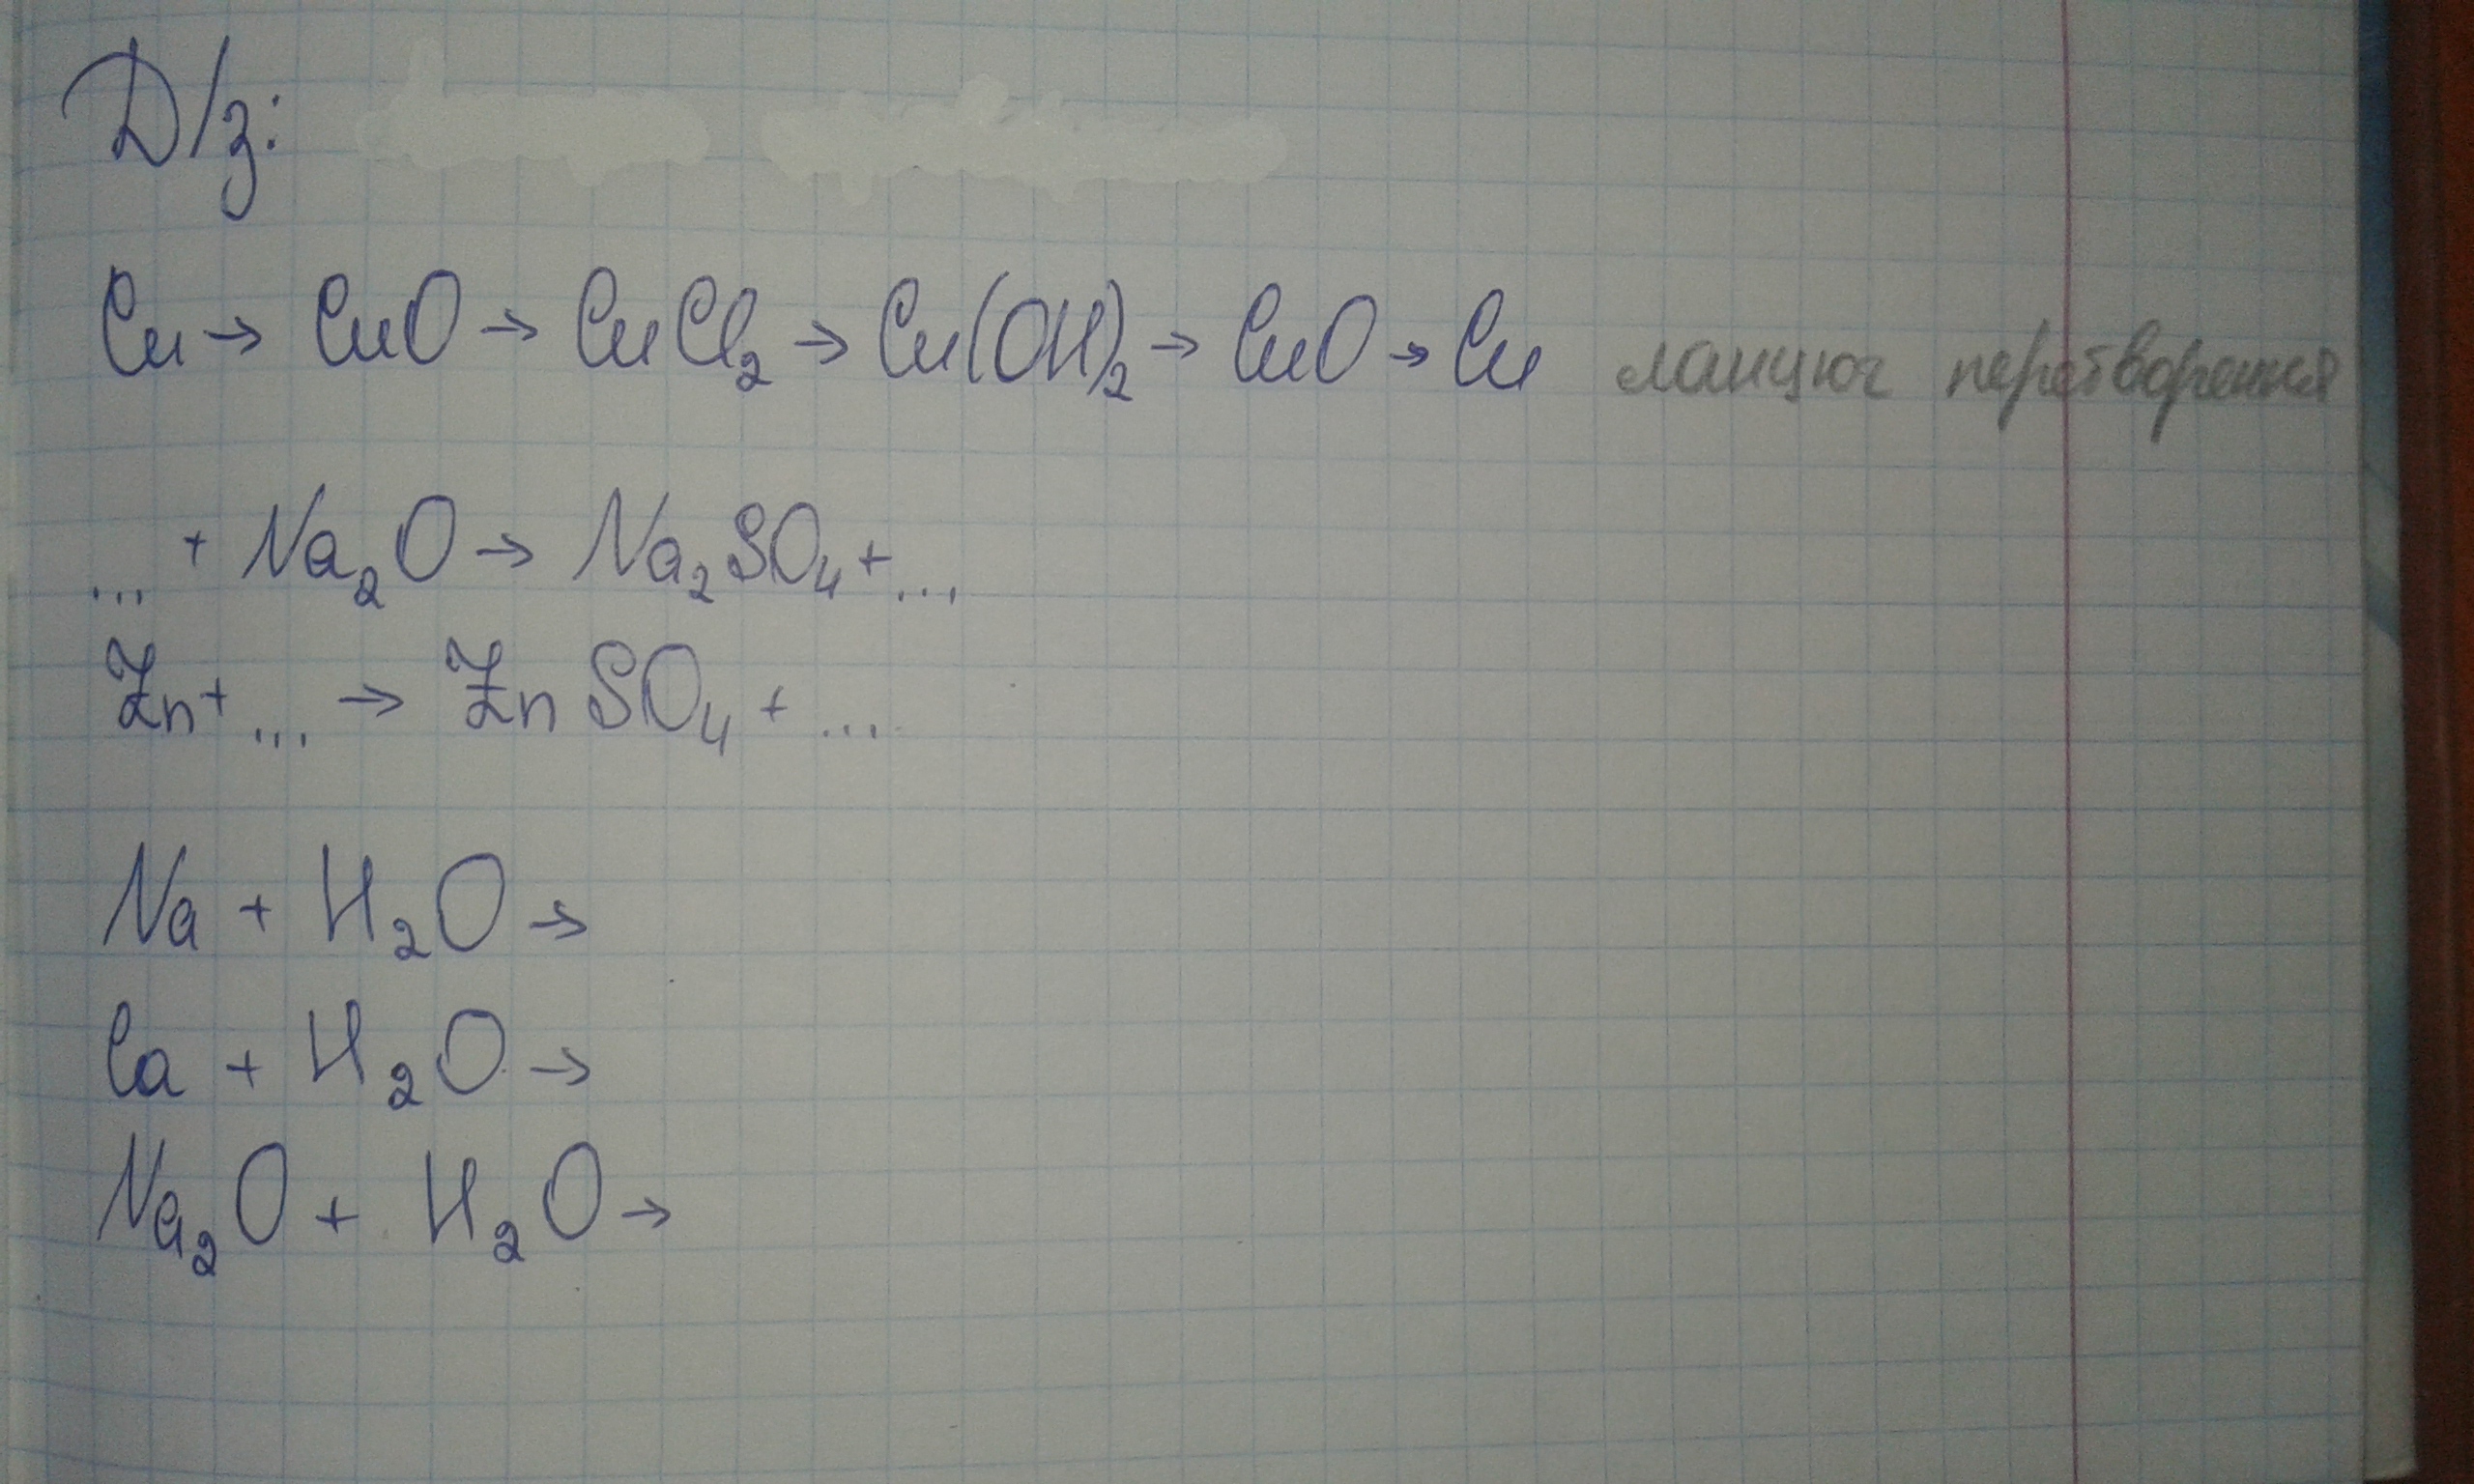 Д/з:
Cu → CuO → CuCl₂ → Cu(OH)₂ → CuO → Cu ланцюг перетворення
... + Na₂O → Na₂SO₄ + ...
Zn + ... → ZnSO₄ + ...
Na + H₂O →
Ca + H₂O →
Na₂O + H₂O →